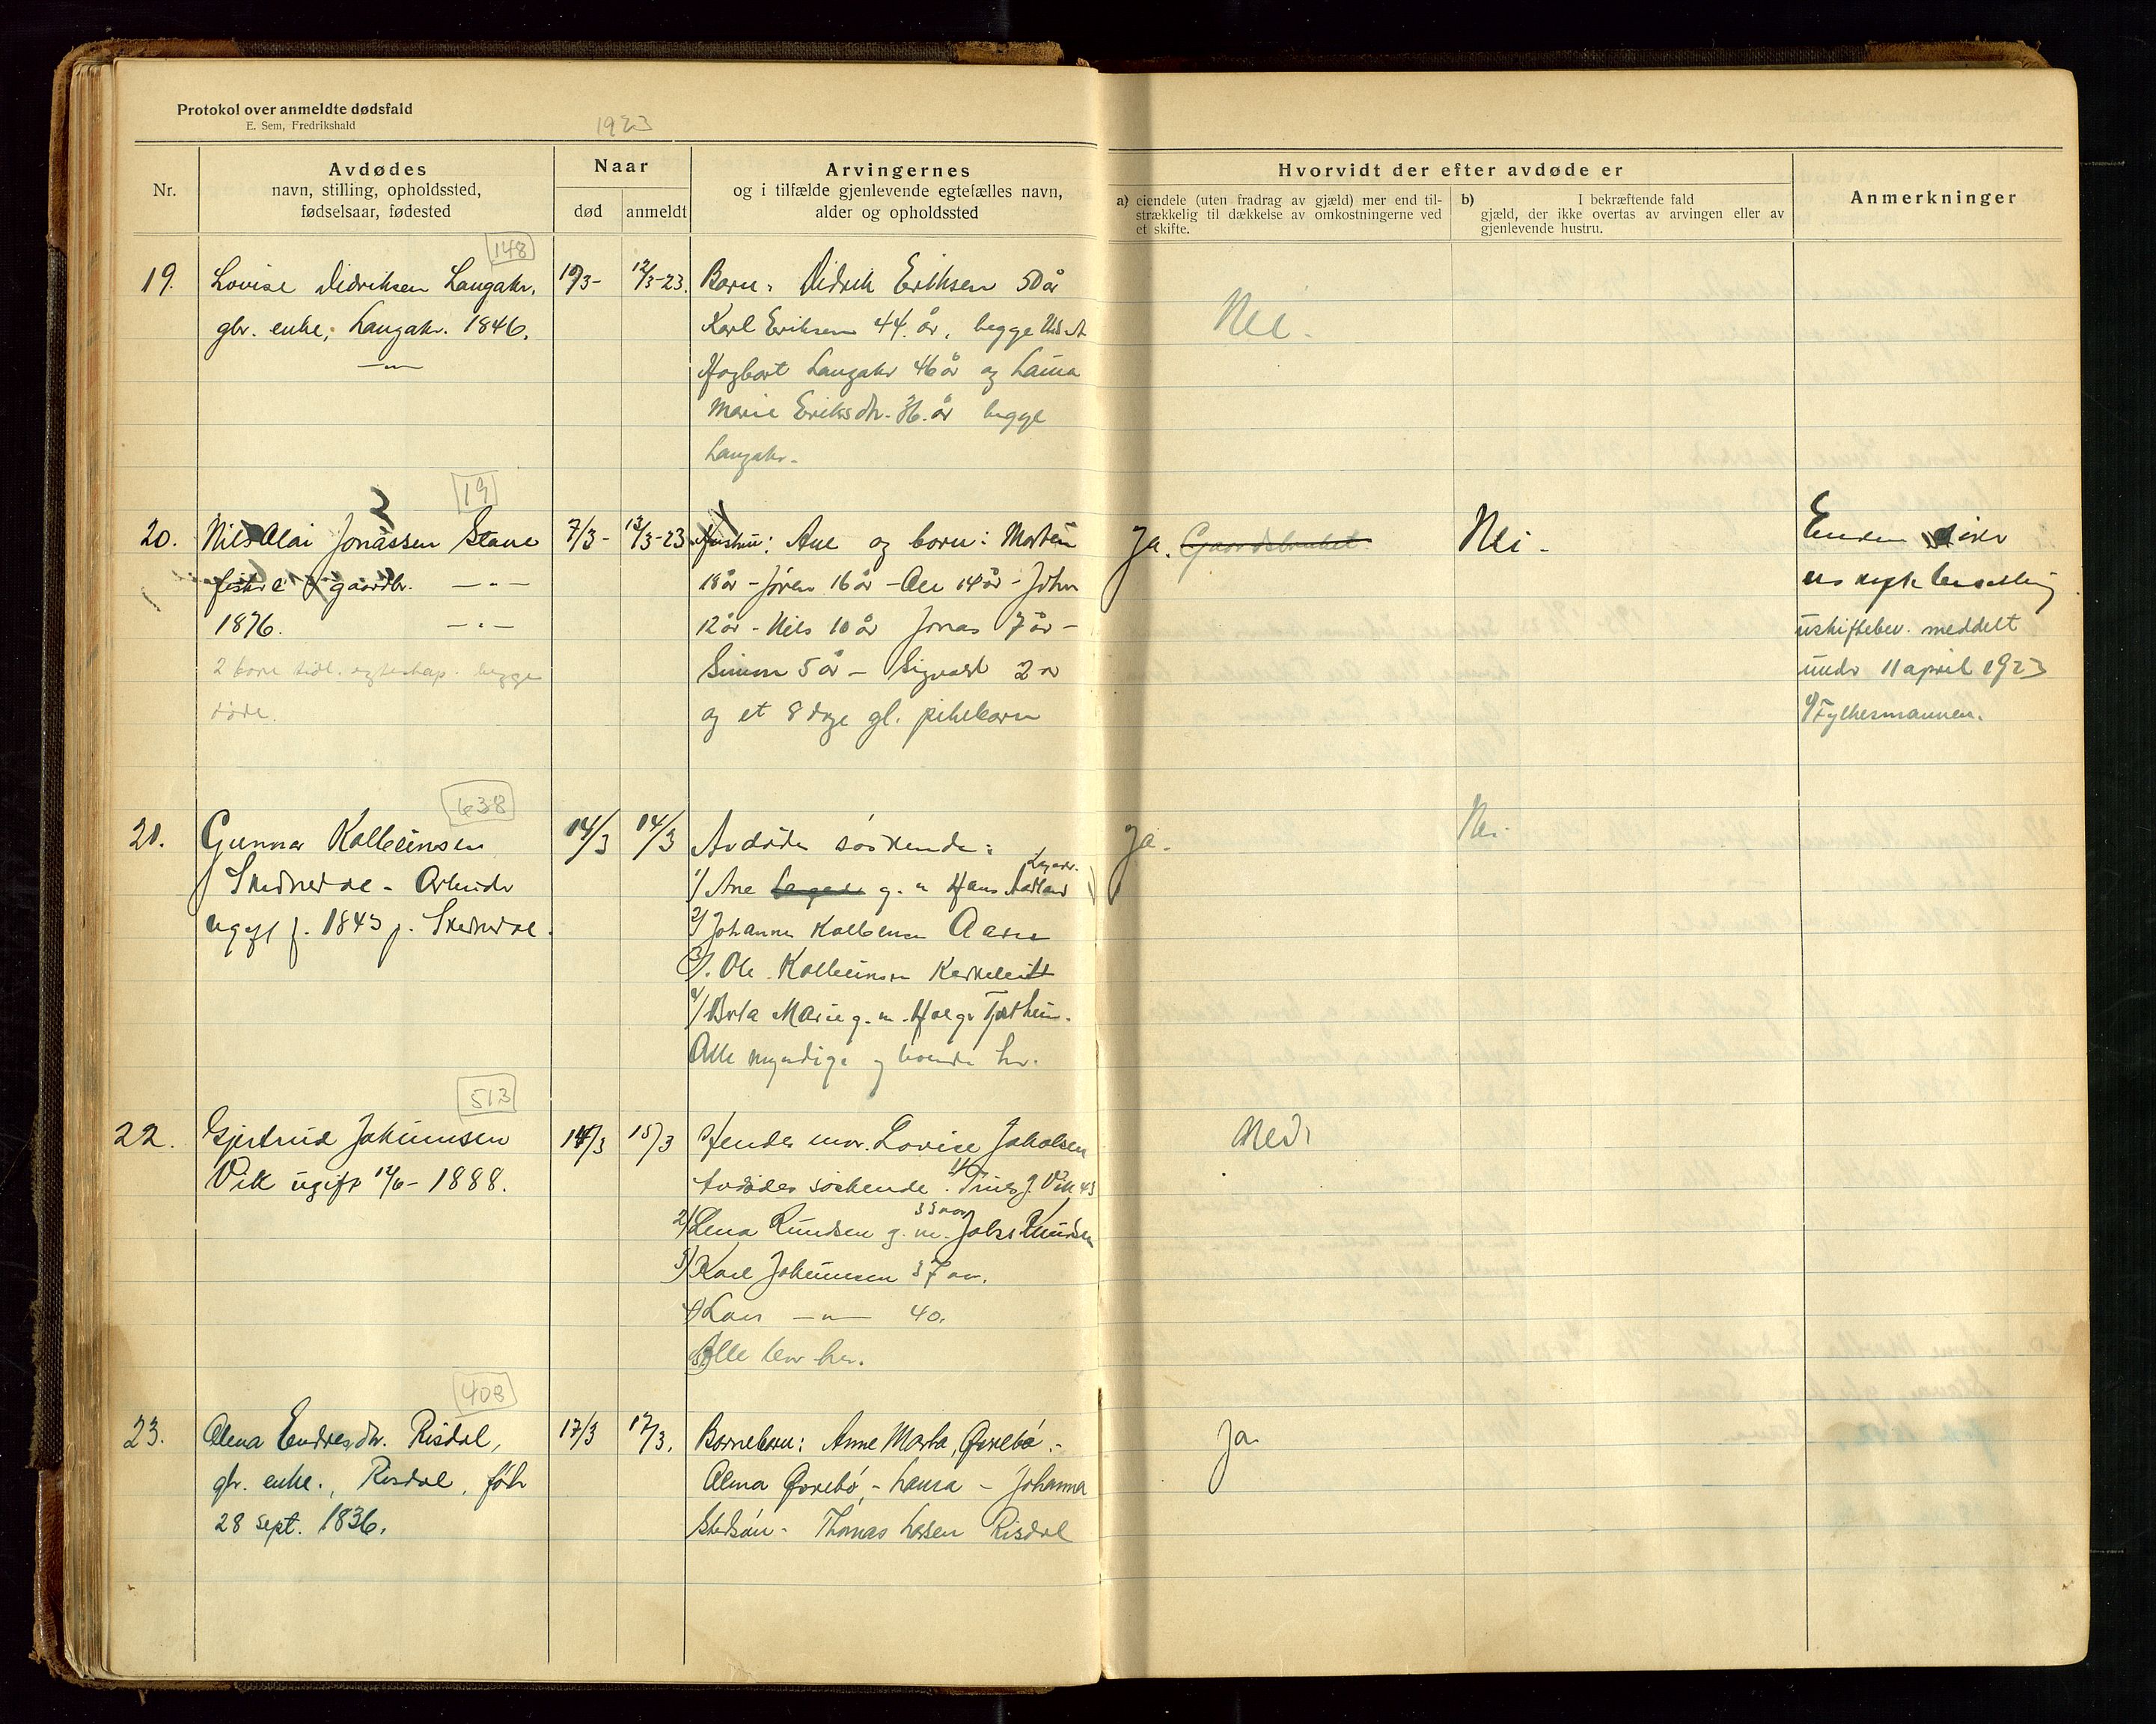 Protokol over anmeldte dødsfald
E. Sem, Fredrikshald
1923
Nr.
Avdødes
navn, stilling, opholdssted,
fødselsaar, fødested
Naar
død
anmeldt
Arvingernes
og i tilfælde gjenlevende egtefælles navn,
alder og opholdssted
Hvorvidt der efter avdøde er
a) eiendele (uten fradrag av gjæld) mer end til-
strækkelig til dækkelse av omkostningerne ved
et skifte.
b) I bekræftende fald
gjæld, der ikke overtas av arvingen eller av
gjenlevende hustru.
Anmerkninger
148
19.
Lovise Didriksen Langaker,
gbr. enke, Langakr. 1846.
—"—
10/3-
12/3-23.
Born: Didrik Eriksen 50 år
Karl Eriksen 44. år, begge
Hagbart Langakr 46 år og
Marie Eriksdtr. 36. år begge
Langakr-
Nei.
19
20.
Nils Olai Jonassen Stave
fisker gaardbr. —"—
1876. —"—
2 born tidl. egteskap. begge
døde.
7/3-
13/3-23
Hustru: Ane og born: Morten
18 år - Jøren 16 år - Ole 14 år - John
12 år - Nils 10 år Jonas 7 år -
Simon 5 år - Sigvald 2 år
og et 8 dage gl. pikebarn
Ja. Gaardsbruket.
Nei-
Enken
uskiftebev. meddelt
under 11 april 1923
Fylkesmannen.
638
21.
Gunnar Kolbeinsen
Skeinedal - Arbeider
ugift f. 1843 p.
14/3
14/3
Avdødes søskende:
1/ Ane g. m Hans
2/ Johannes Kolbeinsen Aase
3/. Ole Kolbeinsen
4/ Berta Marie g. m.
Alle myndige og boende her.
Ja.
Nei.
513
22.
Gjertrud Jokumsen
Vik ugift 12/6- 1888.
14/3
15/3
Hendes mor. Lovise
Avdødes søskende. 1) J. Vik 43
2) Lena Knudsen g. m. Knudsen
33 aar
3) Karl Jokumsen 37 aar.
4) Lars —"— 40.
Alle bor her.
Nei
408
23.
Alena Endresdtr. Risdal,
gbr. enke., Risdal, født
28 sept. 1836.
17/3
17/3.
Barneborn: Anne Marta, Øvrebø.-
Alma Øvrebø, - Laura - Johanna
Thomas Larsen Risdal
Ja